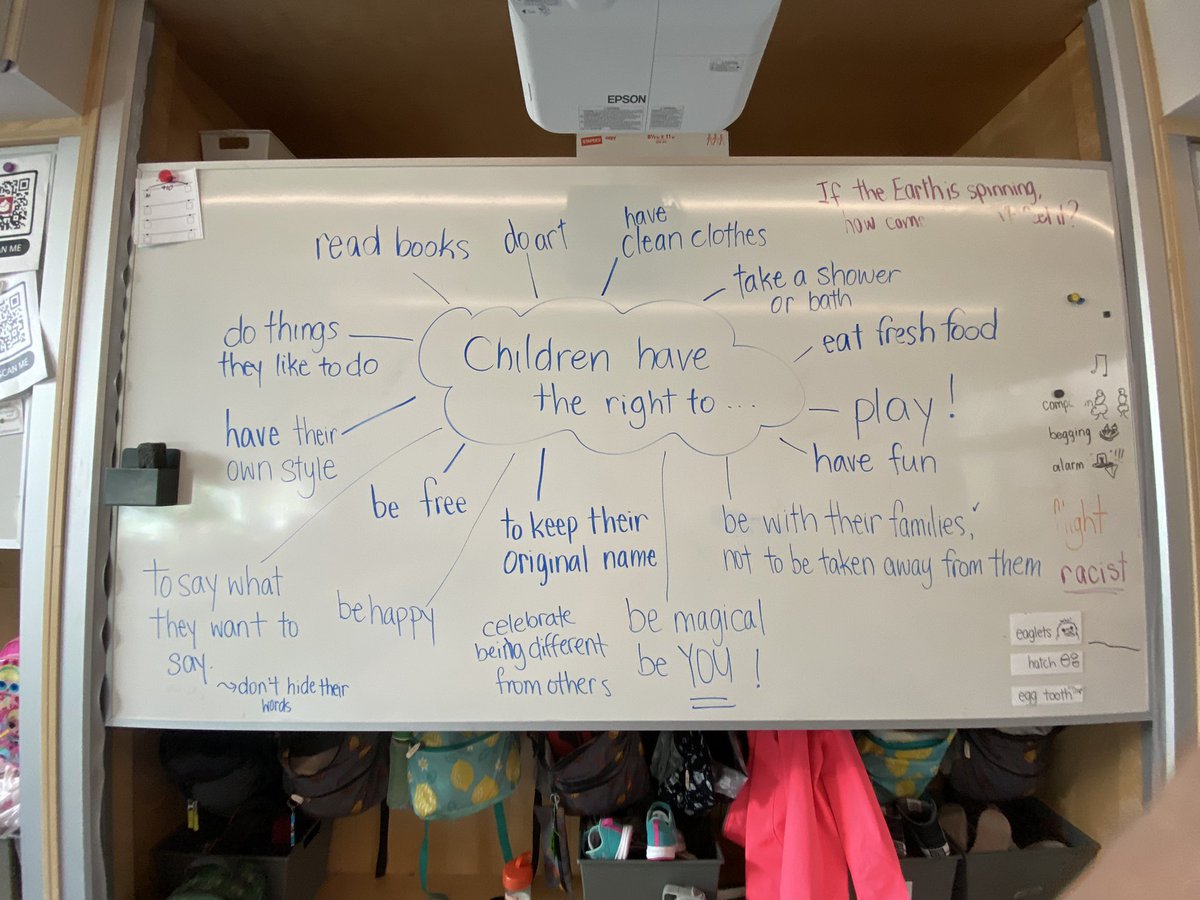 EPSON
STAPLES
8½ x 11
SCAN ME
SCAN ME
If the Earth is spinning,
how come feel it?
read books
do art
have
clean clothes
take a shower
or bath
eat fresh food
play!
have fun
be with their families,
not to be taken away from them
be magical
be YOU!
to keep their
original name
celebrate
being different
from others
be happy
be free
to say what
they want to
say.
→don't hide their
words
have their
own style
do things
they like to do
Children have
the right to ...
begging
alarm
racist
eaglets
hatch
egg tooth